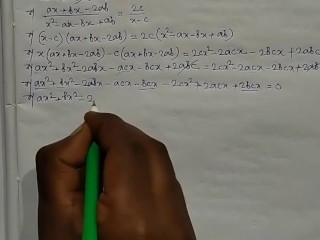 ⇒ (ax+bx-2ab)/(x²-ax-bx+ab) = 2c/(x-c)
⇒ (x-c)(ax+bx-2ab) = 2c(x²-ax-bx+ab)
⇒ x(ax+bx-2ab) - c(ax+bx-2ab) = 2cx²-2acx-2bcx+2abc
⇒ ax²+bx²-2abx-acx-bcx+2abc = 2cx²-2acx-2bcx+2ab
⇒ ax²+bx²-2abx-acx-bcx-2cx²+2acx+2bcx = 0
⇒ ax²+bx²-2